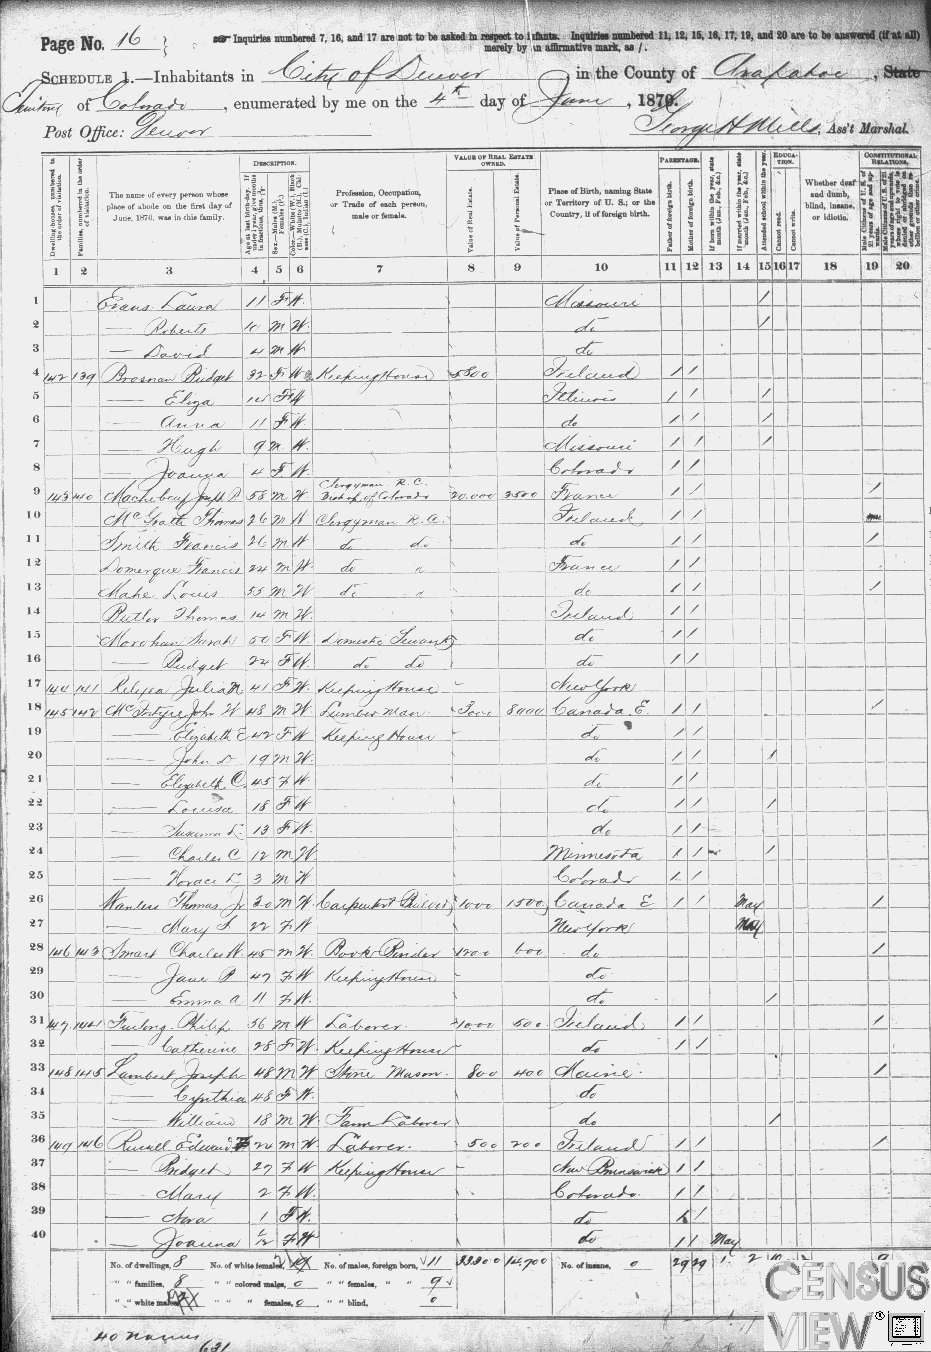 Page No. 16
☞ Inquiries numbered 7, 16, and 17 are not to be asked in respect to infants. Inquiries numbered 11, 12, 15, 16, 17, 19, and 20 are to be answered (if at all)
merely by an affirmative mark, as /.
SCHEDULE 1.—Inhabitants in City of Denver, in the County of Arapahoe, State
Territory of Colorado, enumerated by me on the 4th day of June, 1870.
Post Office: Denver George H Mills, Ass't Marshal.
DESCRIPTION. VALUE OF REAL ESTATE OWNED. PARENTAGE. EDUCATION. CONSTITUTIONAL RELATIONS.
Dwelling-houses, numbered in the order of visitation.
Families, numbered in the order of visitation.
The name of every person whose place of abode on the first day of June, 1870, was in this family.
Profession, Occupation, or Trade of each person, male or female.
Value of Real Estate.
Value of Personal Estate.
Place of Birth, naming State or Territory of U. S.; or the Country, if of foreign birth.
Father of foreign birth.
Mother of foreign birth.
If born within the year, state month (Jan., Feb., &c.)
If married within the year, state month (Jan., Feb., &c.)
Attended school within the year.
Cannot read.
Cannot write.
Whether deaf and dumb, blind, insane, or idiotic.
1 2 3 4 5 6 7 8 9 10 11 12 13 14 15 16 17 18 19 20
1 Evans Laura 11 F W Missouri /
2 — Roberts 10 M W do /
3 — David 4 M W do
4 142 139 Brosnan Bridget 32 F W Keeping House 5800 Ireland / /
5 — Eliza 14 F W Illinois / / /
6 — Anna 11 F W do / / /
7 — Hugh 9 M W Missouri / / /
8 — Joanna 4 F W Colorado / /
9 143 140 Machebeuf Joseph P 58 M W Clergyman R.C. Bishop of Colorado 20.000 3500 France / / /
10 McGrath Thomas 26 M W Clergyman R.C. Ireland / /
11 Smith Francis 26 M W do do do / / /
12 Domergue Francis 24 M W do France / /
13 Mahe Louis 55 M W do do / / /
14 Butler Thomas 14 M W Ireland / /
15 Sarah 50 F W Domestic Servant do / /
16 — Bridget 22 F W do do do / /
17 144 141 Julia M 41 F W Keeping House New York
18 145 142 McIntyre John W 48 M W Lumber Man 3000 8000 Canada E. / / /
19 — Elizabeth E 42 F W Keeping House do / /
20 — John 19 M W do / / /
21 — Elizabeth C. 45 F W do / /
22 — Louisa 18 F W do / / /
23 — Susanna 13 F W do / /
24 — Charles C 12 M W Minnesota / / /
25 — Horace 3 M W Colorado / /
26 Wanless Thomas Jr 30 M W Carpenter & Builder 1000 1500 Canada E / / May /
27 — Mary 22 F W New York May
28 146 143 Smart Charles W 45 M W Book Binder 1200 600 do /
29 — Jane P 47 F W Keeping House do
30 — Emma A 11 F W do /
31 147 144 Furlong Philip 56 M W Laborer. 1000 500 Ireland / / /
32 — Catherine 28 F W Keeping House do / /
33 148 145 Lambert Joseph 48 M W Stone Mason 800 400 Maine /
34 — Cynthia 48 F W do
35 — William 18 M W Farm Laborer do /
36 149 146 Russell Edward 24 M W Laborer. 500 200 Ireland / / /
37 — Bridget 27 F W Keeping House New Brunswick / /
38 — Mary 2 F W Colorado / /
39 — Nora 1 F W do / /
40 — Joanna 1/12 F W do / / May
No. of dwellings, 8 No. of white females, No. of males, foreign born, 11 33300 14,700 No. of insane, 0 29 29 1 2
" " families, 8 " " colored males, 0 " " females, " " 9
" " white males, " " " females, 0 " " blind, 0
40 names
631
CENSUS
VIEW®